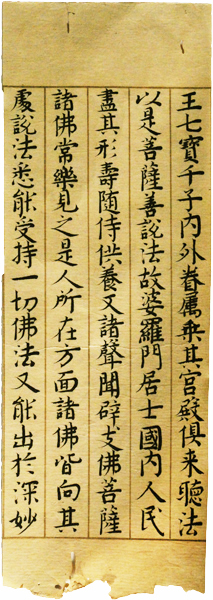 王七寶千子內外眷屬乘其宮殿俱來聽法
以是菩薩善說法故婆羅門居士國內人民
盡其形壽隨侍供養又諸聲聞辟支佛菩薩
諸佛常樂見之是人所在方面諸佛皆向其
處說法悉能受持一切佛法又能出於深妙